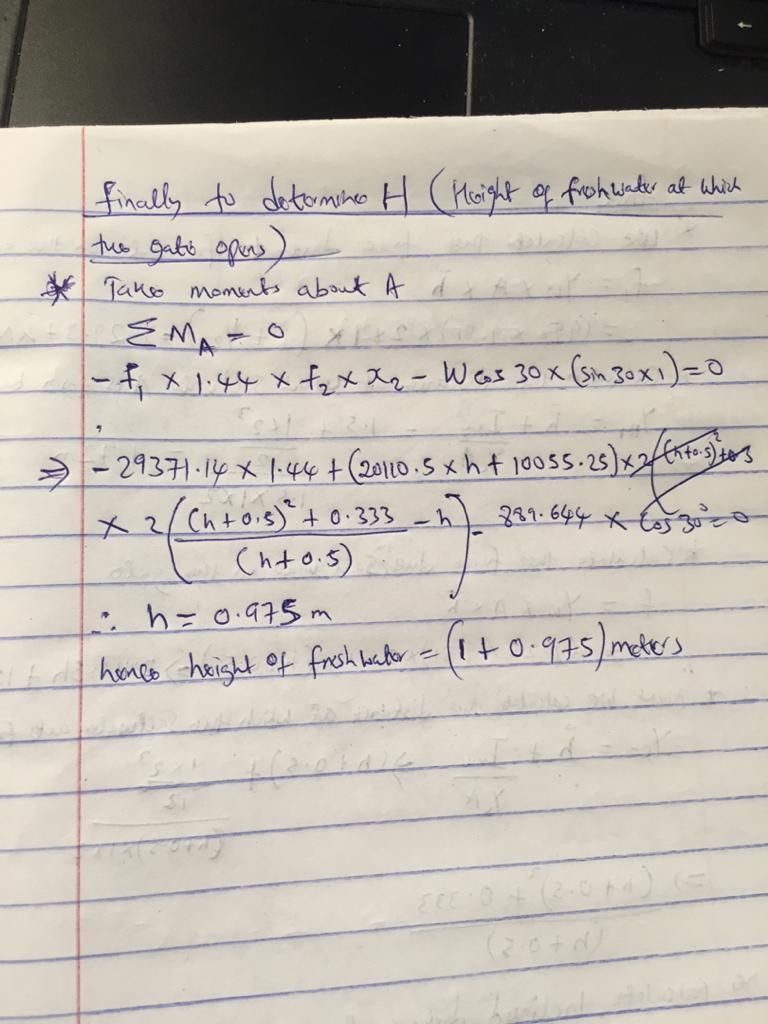 Finally to determine H (Height of freshwater at which
the gate opens)
* Take moments about A
ΣM_A = 0
- f₁ × 1.44 × f₂ × x₂ - W cos 30 × (sin 30 × 1) = 0
⇒ - 29371.14 × 1.44 + (20110.5 × h + 10055.25) × 2
× 2 ( (h + 0.5)² + 0.333 / (h + 0.5) - h ) - 889.644 × cos 30° = 0
∴ h = 0.975 m
hence height of freshwater = (1 + 0.975) meters